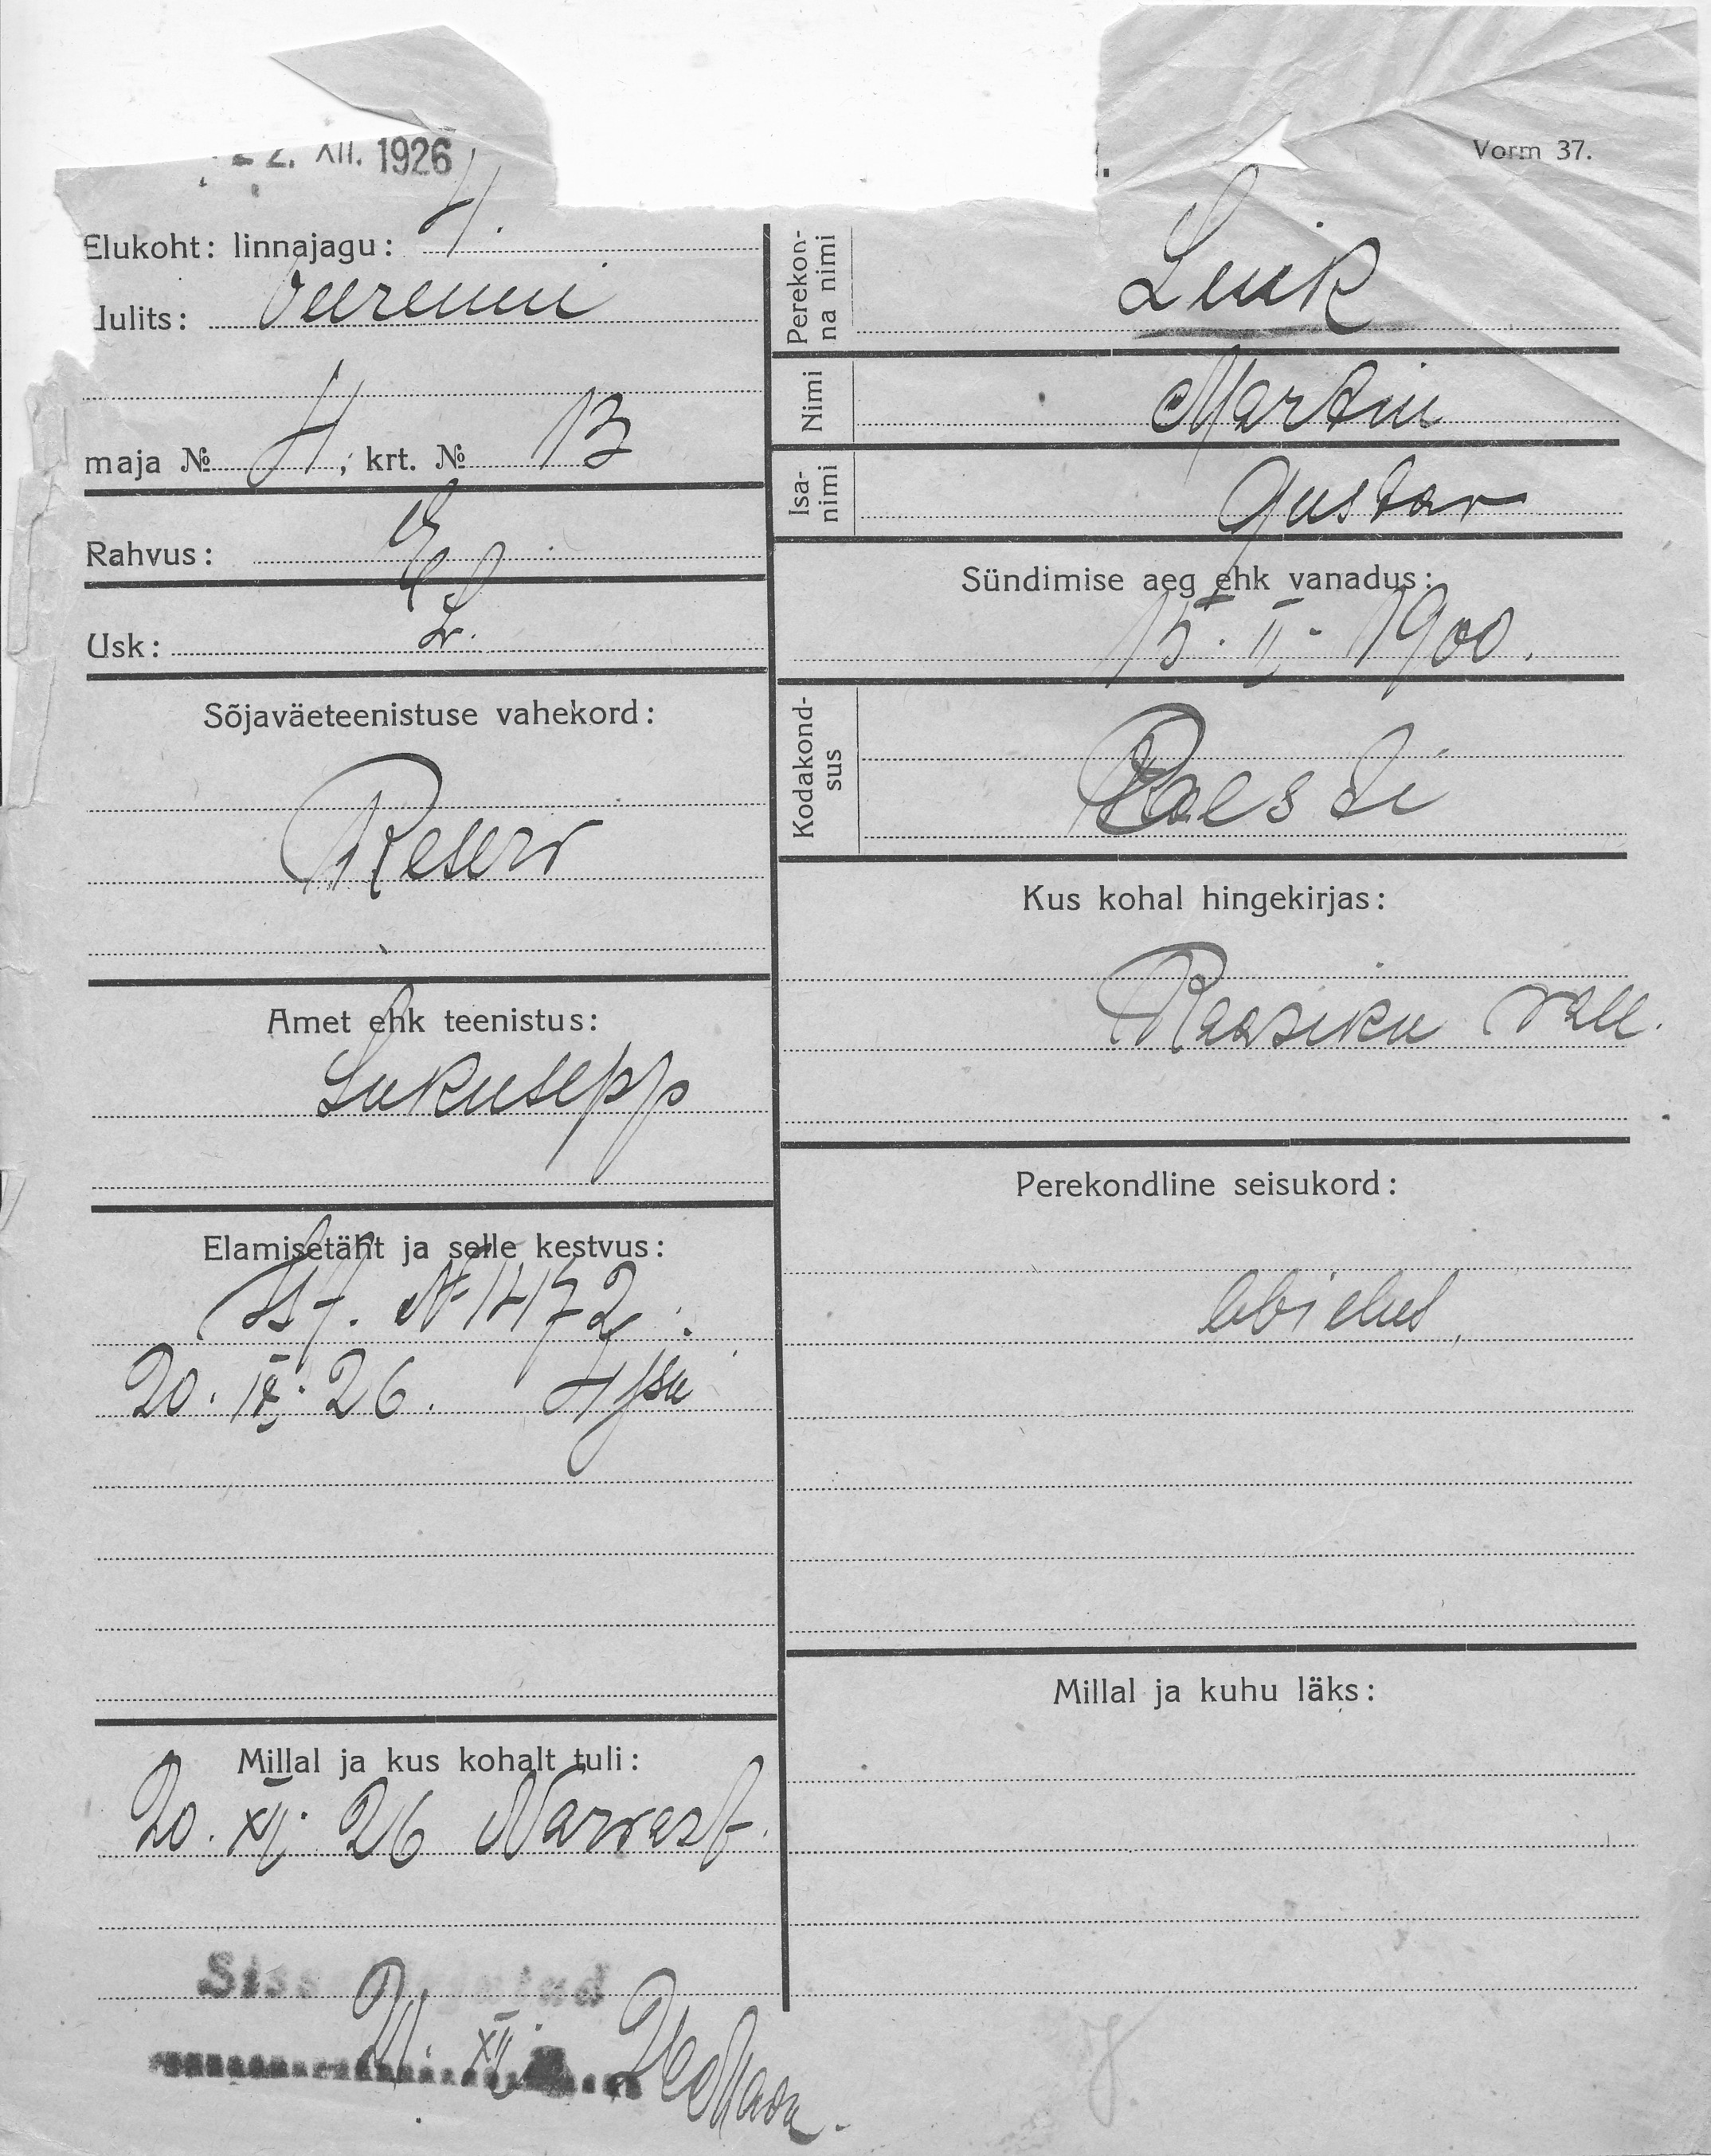 2. XII. 1926
Vorm 37.
Elukoht: linnajagu: 4.
Uulits: Veerenni
maja № 4, krt. № 13
Rahvus: E
Usk: L.
Sõjaväeteenistuse vahekord:
Reserv
Amet ehk teenistus:
Lukusepp
Elamisetäht ja selle kestvus:
№ 1472
20. IX. 26.
Millal ja kus kohalt tuli:
20. XII. 26 Narvast.
Sisse
21. XII
Perekonna nimi
Luik
Nimi
Martin
Isanimi
Gustav
Sündimise aeg ehk vanadus:
15. II. 1900.
Kodakondsus
Eesti
Kus kohal hingekirjas:
Raasiku vall.
Perekondline seisukord:
abielus,
Millal ja kuhu läks: